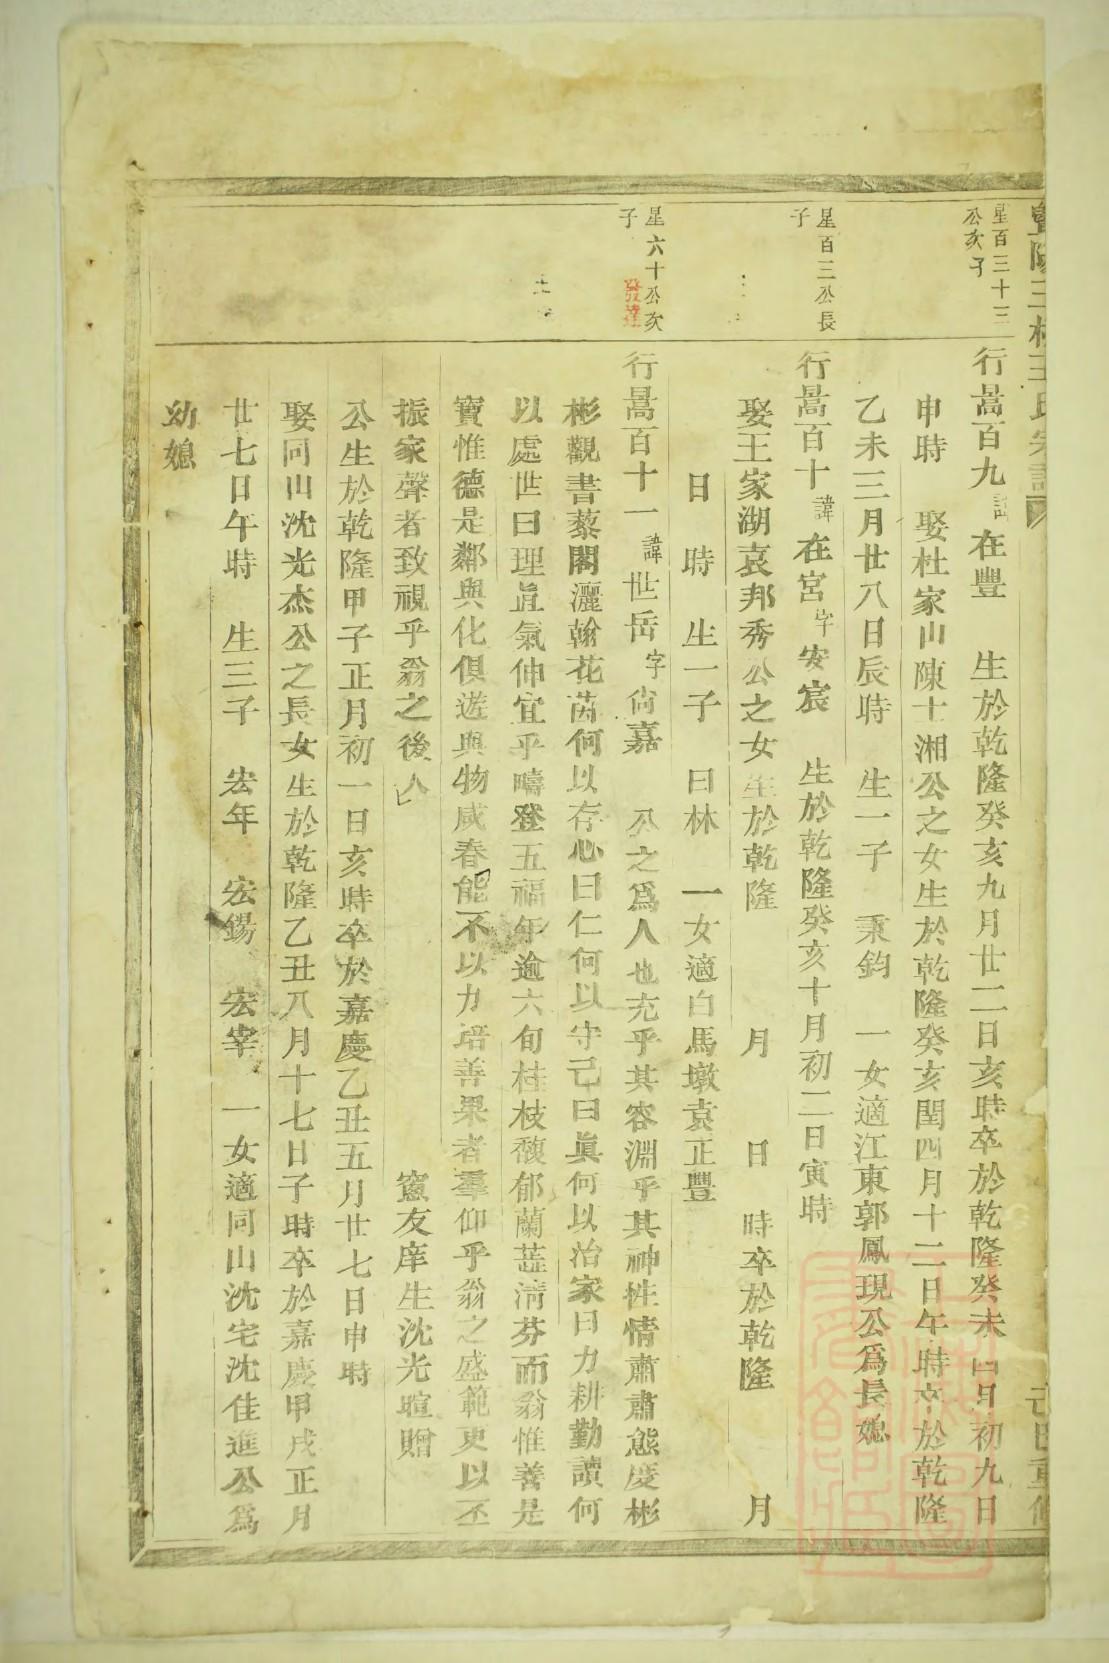 星百三十三
公次子
行暠百九諱在豐　生於乾隆癸亥九月廿二日亥時卒於乾隆癸未四月初九日
申時　娶杜家山陳十湘公之女生於乾隆癸亥閏四月十二日午時卒於乾隆
乙未三月廿八日辰時　生一子　秉鈞　一女適江東郭鳳現公爲長媳
星百三公長
子
行暠百十諱在宮字安宸　生於乾隆癸亥十月初二日寅時
娶王家湖袁邦秀公之女生於乾隆　月　日　時卒於乾隆　月
日　時　生一子　曰林　一女適白馬墩袁正豐
星六十公次
子
發達
行暠百十一諱世岳字尙嘉　公之爲人也充乎其容淵乎其神性情肅肅態度彬
彬觀書藜閣灑翰花茵何以存心曰仁何以守己曰眞何以治家曰力耕勤讀何
以處世曰理直氣伸宜乎疇登五福年逾六旬桂枝馥郁蘭蕋淸芬而翁惟善是
寶惟德是鄰與化俱遊與物咸春能不以力培善果者羣仰乎翁之盛範更以丕
振家聲者致視乎翁之後人　窻友庠生沈光暄贈
公生於乾隆甲子正月初一日亥時卒於嘉慶乙丑五月廿七日申時
娶同山沈光杰公之長女生於乾隆乙丑八月十七日子時卒於嘉慶甲戌正月
廿七日午時　生三子　宏年　宏錫　宏宰　一女適同山沈宅沈佳進公爲
幼媳